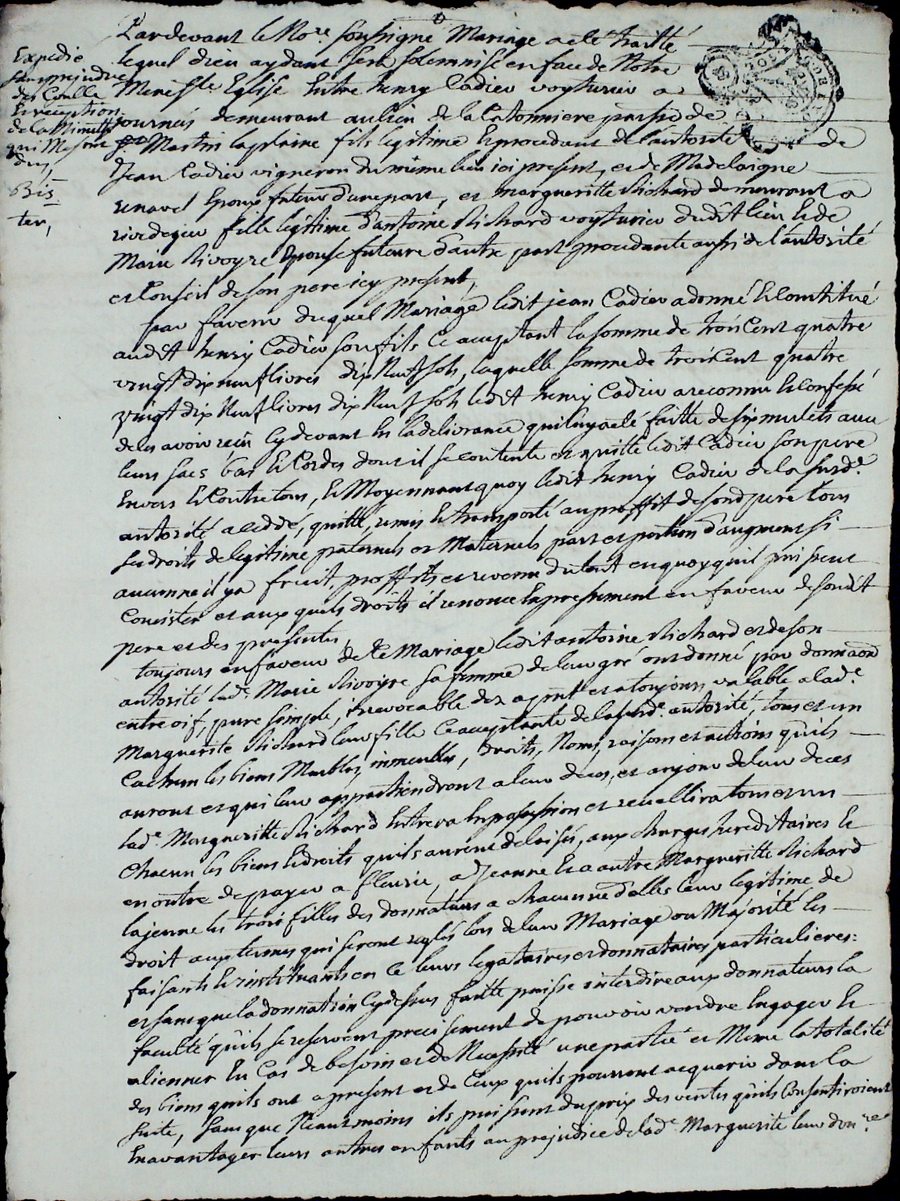 Pardevant le No.re soussigné Mariage a été traitté
lequel dieu aydant sera solemnisé en face de Notre
Mere Ste Eglise Entre henry Cadier voyturier a
journées demeurant au lieu de la Catonniere parr.sse de
St Martin laplaine fils legitime Es procedant de l'autorité de
Jean Cadier vigneron du même lieu ici present, et de Madelaigne
renavel Epoux futeur d'une part, et margueritte Richard demeurant a
rivedegier fille legitime d'antoine Richard voyturier dudit lieu et de
Marie Rivoyre Epouse future d'autre part procedante aussi de l'autorité
et Conseil de son pere icy present,
pour faveur duquel Mariage ledit jean Cadier a donné et Constitué
audit henry Cadier son fils Ce acceptant la somme de trois Cent quatre
vingt dix neuf livres dix Neuf sols, laquelle somme de trois Cent quatre
vingt dix Neuf livres dix Neuf sols ledit henry Cadier a reconnu et Confessé
de les avoir reçu Cy devant Et la delivrance qui luy a eté faitte de six mulets avec
leurs sacs bas et Cordes dont il se contente et quitte ledit Cadier son pere
Envers et Contre tous, et Moyennant quoy ledit henry Cadier de la susd.e
autorité a Cedé, quitté, remis et transporté au proffit de sond pere tous
ses droits de legitime paternels et Maternels part et portion d'augment si
aucunne il y a fruit proffits et revenu du tout en quoy qu'il puissent
Consister et aux quels droits il renonce Expressement en faveur de sondit
pere et des presentes,
toujours en faveur de Ce Mariage ledit antoine Richard et de son
autorité lad.e Marie Rivoyre sa femme de leur gré ont donné par donnaon
entre vif, pure simple, irrevocable dez apnt et a toujours valable a lad.e
Marguerite Richard leur fille Ce acceptante de la susd.e autorité, tous et un
Cachun les biens Meubles, immeubles, droits, Noms, raisons et actions qu'ils
auront et qui leur appartiendront a leur deces, et au jour de leur deces
lad.e Margueritte Richard Entrera En possession et recuellira tous et un
Chacun les biens et droits qu'ils auront delaissés, aux charges hereditaires et
en outre de payer a fleurie, a Jeanne et a autre Margueritte Richard
la jeune les trois filles des donnateurs a chacunne d'elles leur legitime de
droit aux termes qui seront reglés lors de leur Mariage ou Majorité les
faisants et instituants en Ce leurs legataires et donnataires particulieres:
et sans que la donnation Cy dessus faitte puisse interdire aux donnateurs la
faculté qu'ils se reservent precisement de pouvoir vendre Engager et
alienner En Cas de besoin et de Necessité une partie et Meme la totalité
des biens qu'ils ont a present et de Ceux qu'ils pourront acquerir dans la
suite, sans que Neantmoins ils puissent du prix des ventes qu'ils Consentiroient
En avantager leurs autres enfants au prejudice de lad.e Marguerite leur don.re
Expedié
sans prejudice
du Conlle
Et reception
de la Minutte
qui M'es sont
dus,
Bis
ter,